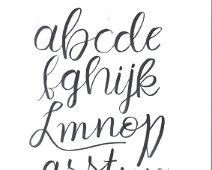 abcde
fghijk
lmnop